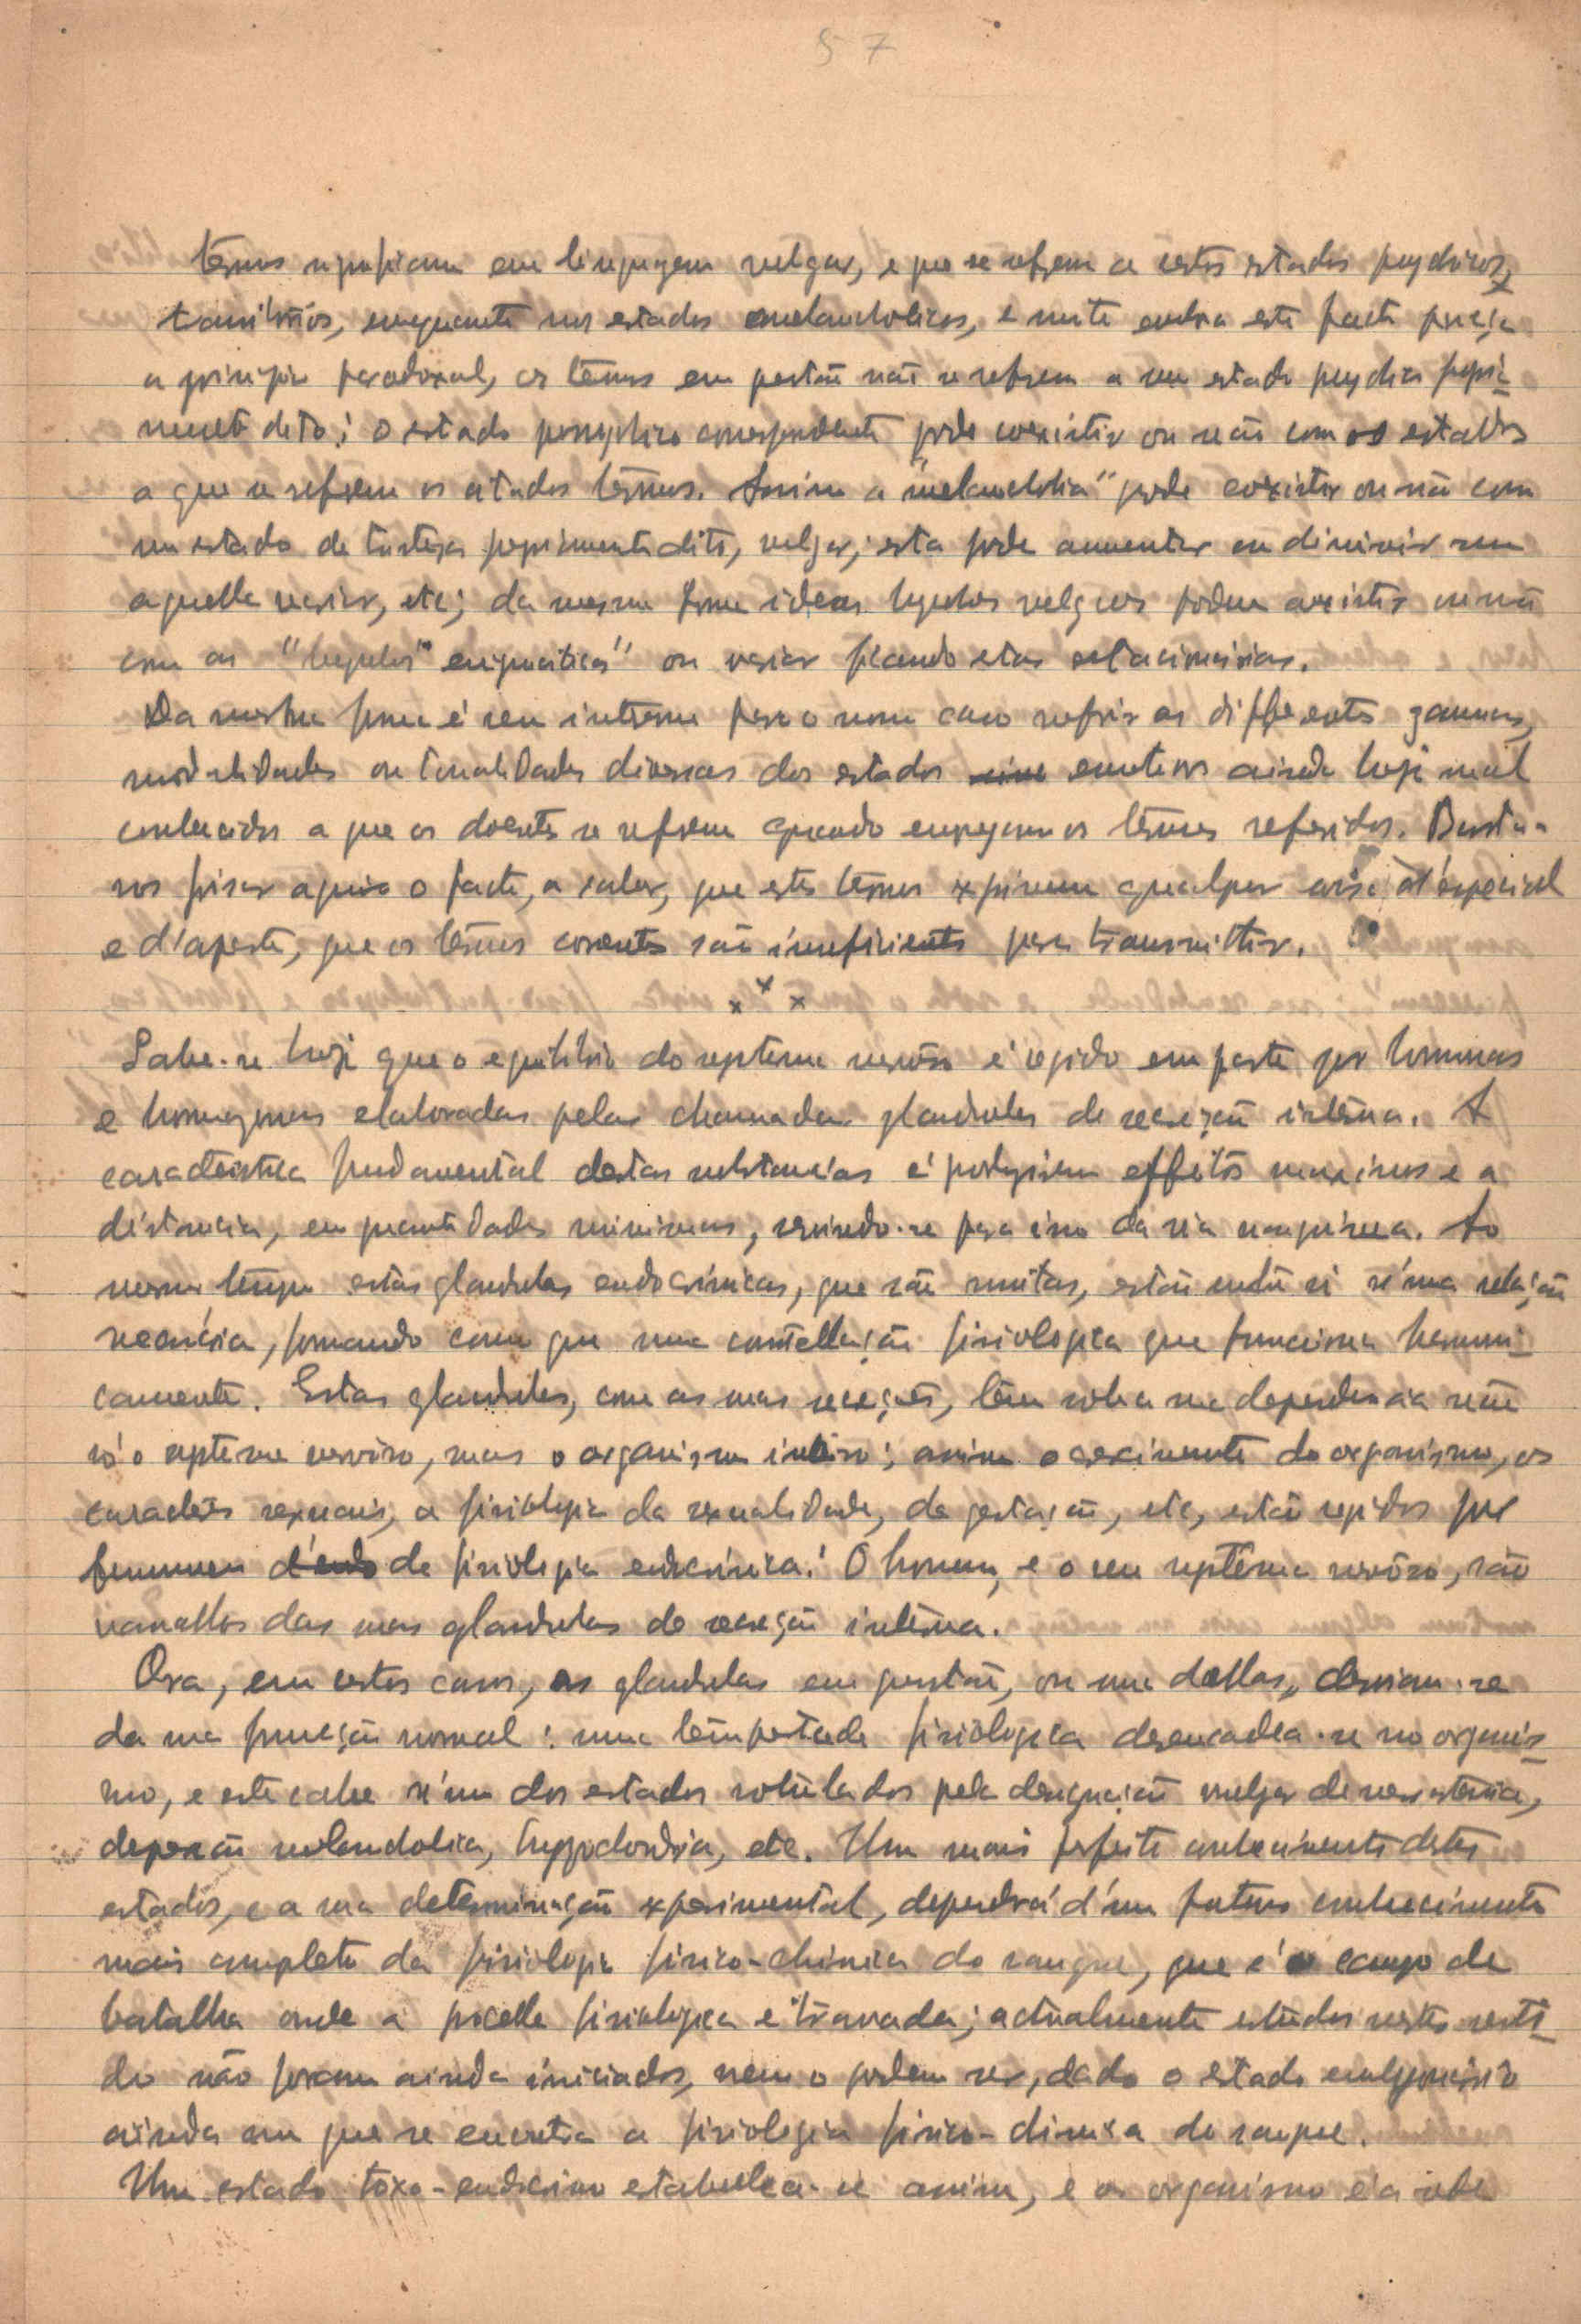 57
termos significam em linguagem vulgar, e que se referem a certos estados psychicos
transitorios, emquanto nos estados melancholicos, e muito embora este facto pareça
a principio paradoxal, os termos em questão não se referem a um estado psychico propria-
mente dito; o estado correspondente pode coexistir ou não com os estados
a que se referem os citados termos. Assim a "melancholia" pode coexistir ou não com
um estado de tristeza propriamente dito, vulgar; esta pode augmentar ou diminuir sem
aquella variar, etc; da mesma forma ideas vulgares podem coexistir ou não
com as ou variar ficando estas estacionarias.
Da mesma forma é sem interesse para o nosso caso referir as differentes gammas,
modalidades ou tonalidades diversas dos estados emotivos ainda hoje mal
conhecidos a que os doentes se referem quando empregam os termos referidos. Basta-
nos frisar aqui o facto, a saber, que estes termos exprimem qualquer coisa d'especial
e d'aparte, que os termos correntes são insuficientes para transmittir.
x x x
Sabe-se hoje que o equilibrio do systema nervoso é regido em parte por hormonas
e elaboradas pelas chamadas glandulas de secreção interna. A
caracteristica fundamental destas substancias é produzirem effeitos maximos e a
distancia, em quantidades minimas, servindo-se para isso da via sanguinea. Ao
mesmo tempo estas glandulas endocrinicas, que são muitas, estão entre si n'uma relação
necessaria, formando como que uma constellação fisiologica que funcciona harmoni-
camente. Estas glandulas, com as suas secreções, têm sob a sua dependencia não
só o systema nervoso, mas o organismo inteiro; assim o crescimento do organismo, os
caracteres sexuais, a fisiologia da sexualidade, da gestação, etc, estão regidos por
fenomenos de fisiologia endocrinica. O homem, e o seu systema nervoso, são
vassallos das suas glandulas de secreção interna.
Ora, em certos casos, as glandulas em questão, ou uma dellas, desviam-se
da sua funcção normal: uma tempestade fisiologica desencadea-se no organis-
mo, e este cahe n'um dos estados rotulados pela designação vulgar de neurastenia,
depressão melancholica, hyppochondria, etc. Um mais perfeito conhecimento destes
estados, e a sua determinação experimental, dependerá d'um futuro conhecimento
mais completo da fisiologia fisico-chimica do sangue, que é o campo de
batalha onde a procella fisiologica é travada; actualmente estudos neste senti-
do não foram ainda iniciados, nem o podem ser, dado o estado embryonario
ainda em que se encontra a fisiologia fisico-chimica do sangue.
Um estado toxo-endocrino estabelece-se assim, e o organismo é a sede